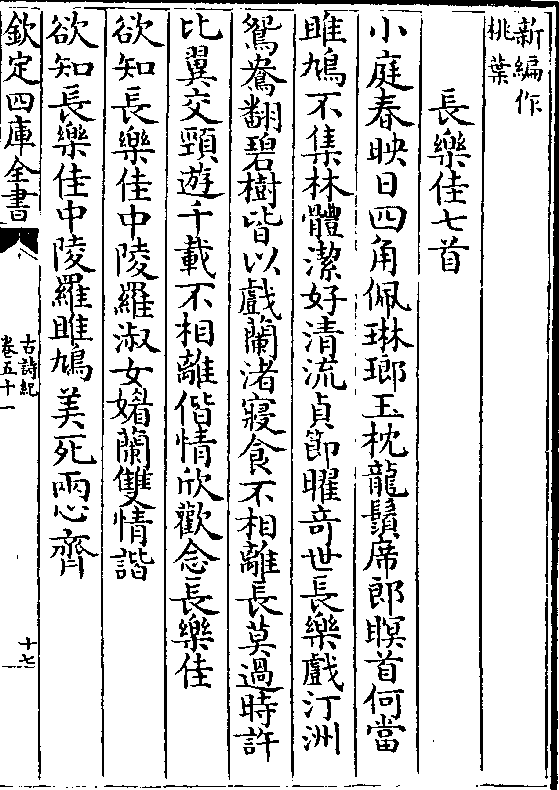 新編作
桃葉
長樂佳七首
小庭春映日四角佩琳瑯玉枕龍鬚席郎瞑首何當
雎鳩不集林體潔好清流貞節曜奇世長樂戲汀洲
鴛鴦翻碧樹皆以戲蘭渚寢食不相離長莫過時許
比翼交頸遊千載不相離偕情欣歡念長樂佳
欲知長樂佳中陵羅淑女媚蘭雙情諧
欲知長樂佳中陵羅雎鳩美死兩心齊
欽定四庫全書
古詩紀
卷五十一
十七